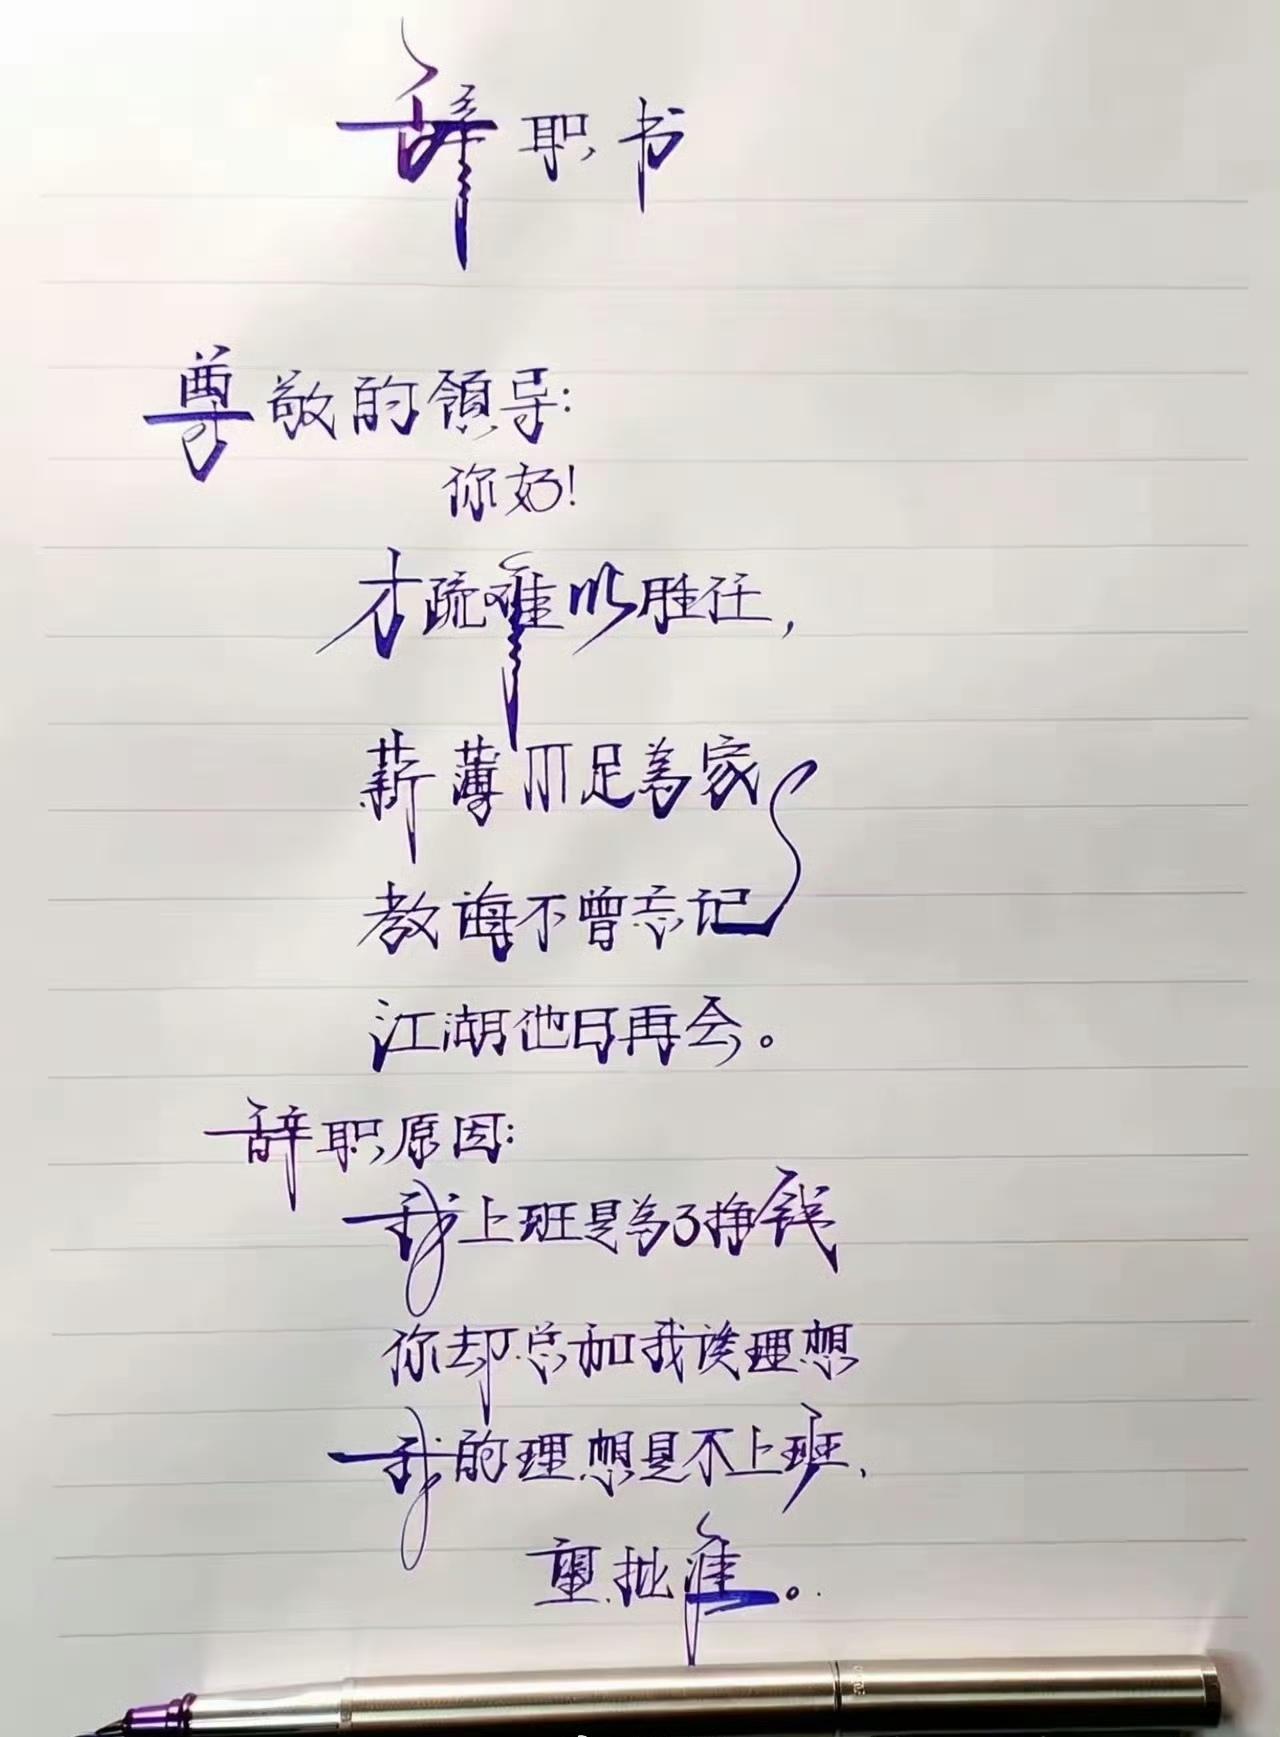 辞职书
尊敬的領导:
你好!
才疏难以胜任,
薪薄不足為家
教诲不曾忘记
江湖他日再会。
辞职原因:
我上班是為了挣钱
你却总和我谈理想
我的理想是不上班,
望批准。